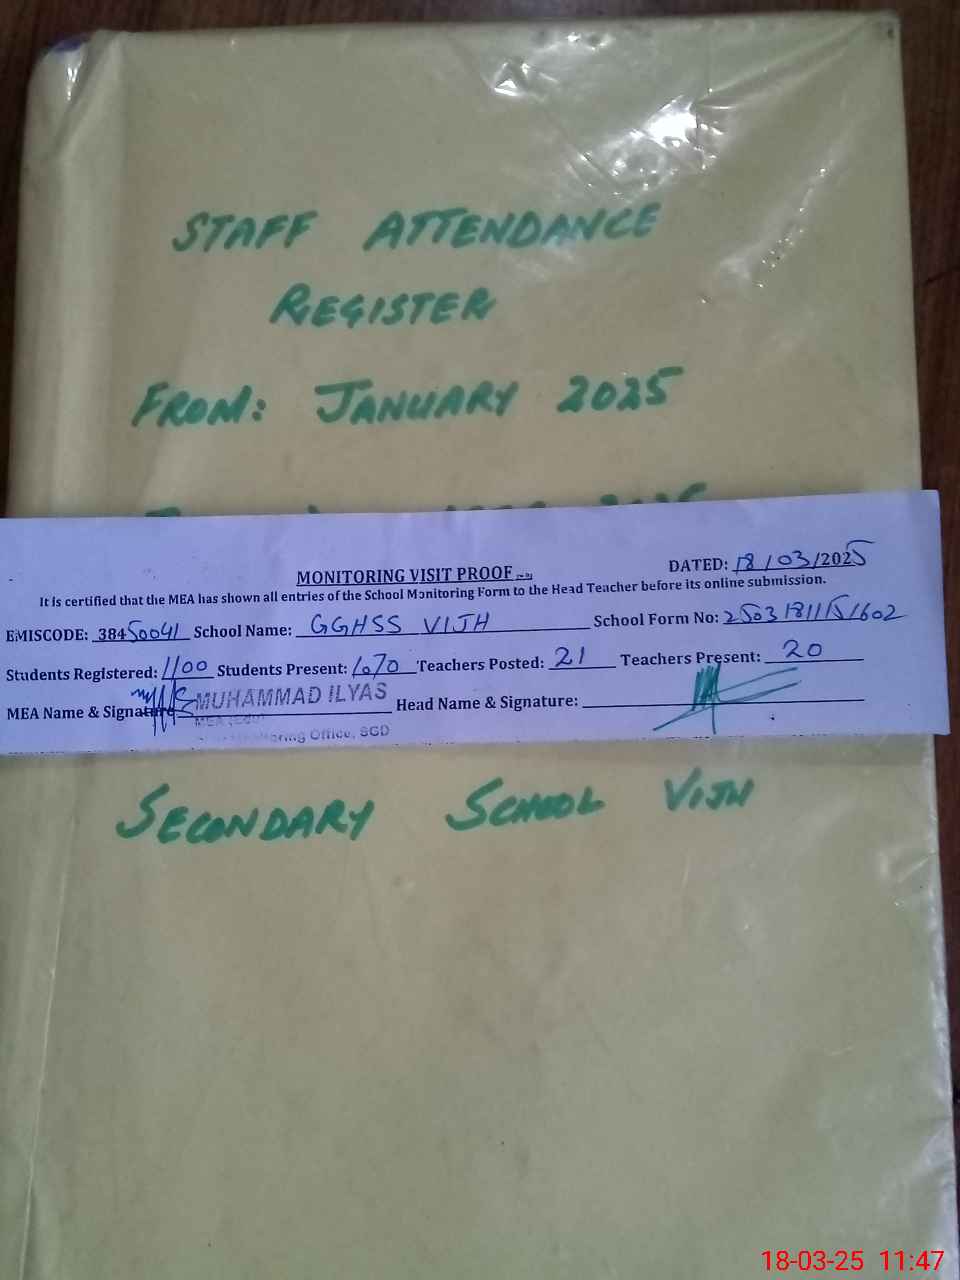 STAFF ATTENDANCE
REGISTER
FROM: JANUARY 2025
MONITORING VISIT PROOF
DATED: 18/03/2025
It is certified that the MEA has shown all entries of the School Monitoring Form to the Head Teacher before its online submission.
EMISCODE: 38450041 School Name: GGHSS VIJH School Form No: 2503181151602
Students Registered: 1100 Students Present: 1070 Teachers Posted: 21 Teachers Present: 20
MEA Name & Signature MUHAMMAD ILYAS Head Name & Signature:
MEA
Office, SGD
SECONDARY SCHOOL VIJH
18-03-25 11:47